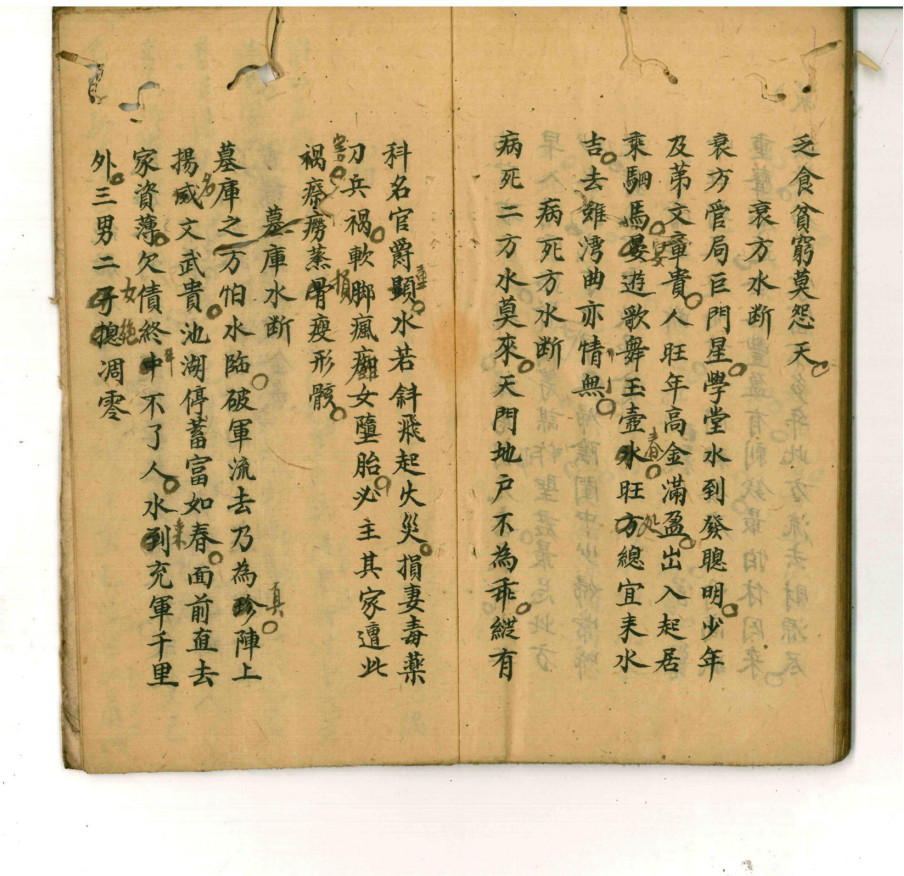 乏食貧窮莫怨天
衰方水斷
衰方管局巨門星學堂水到發聰明少年
及苐文章貴人旺年高金滿盈出入起居
乘駟馬晏遊歌舞玉壺氷旺方總宜来水
吉去雖湾曲亦情無
病死方水断
病死二方水莫来天門地戶不為乖縦有
科名官爵顯水若斜飛起火災損妻毒薬
刀兵禍軟脚瘋癱女墮胎必主其家遭此
禍瘵癆蒸骨瘦形骸
墓庫水断
墓庫之方怕水臨破軍流去乃為珍陣上
揚威文武貴池湖停蓄富如春面前直去
家資薄欠債終中不了人水到充軍千里
外三男二子凋零
宴
春
処
害
損
真
名
年
来
女
絶